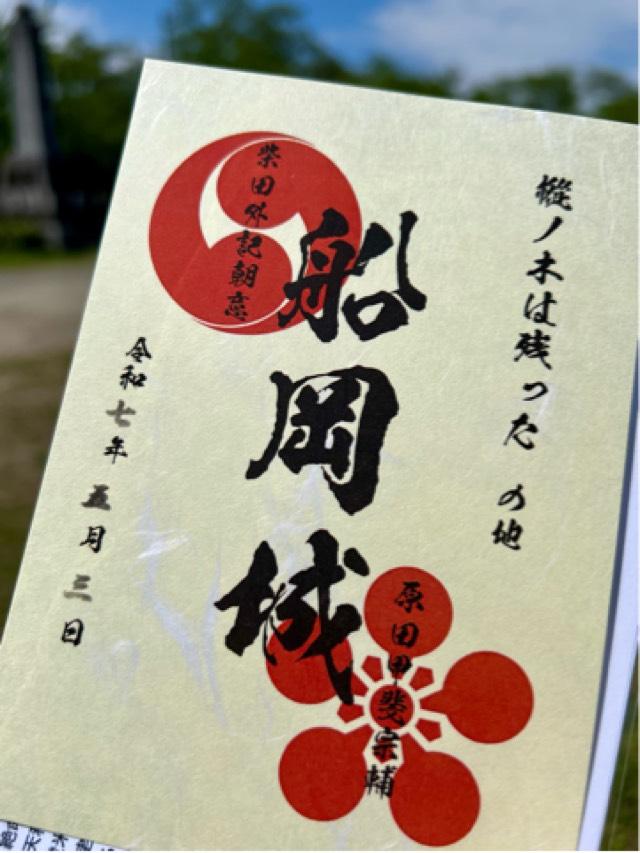 樅ノ木は残った の地
船岡城
柴田外記朝意
原田甲斐宗輔
令和七年 五月 三日